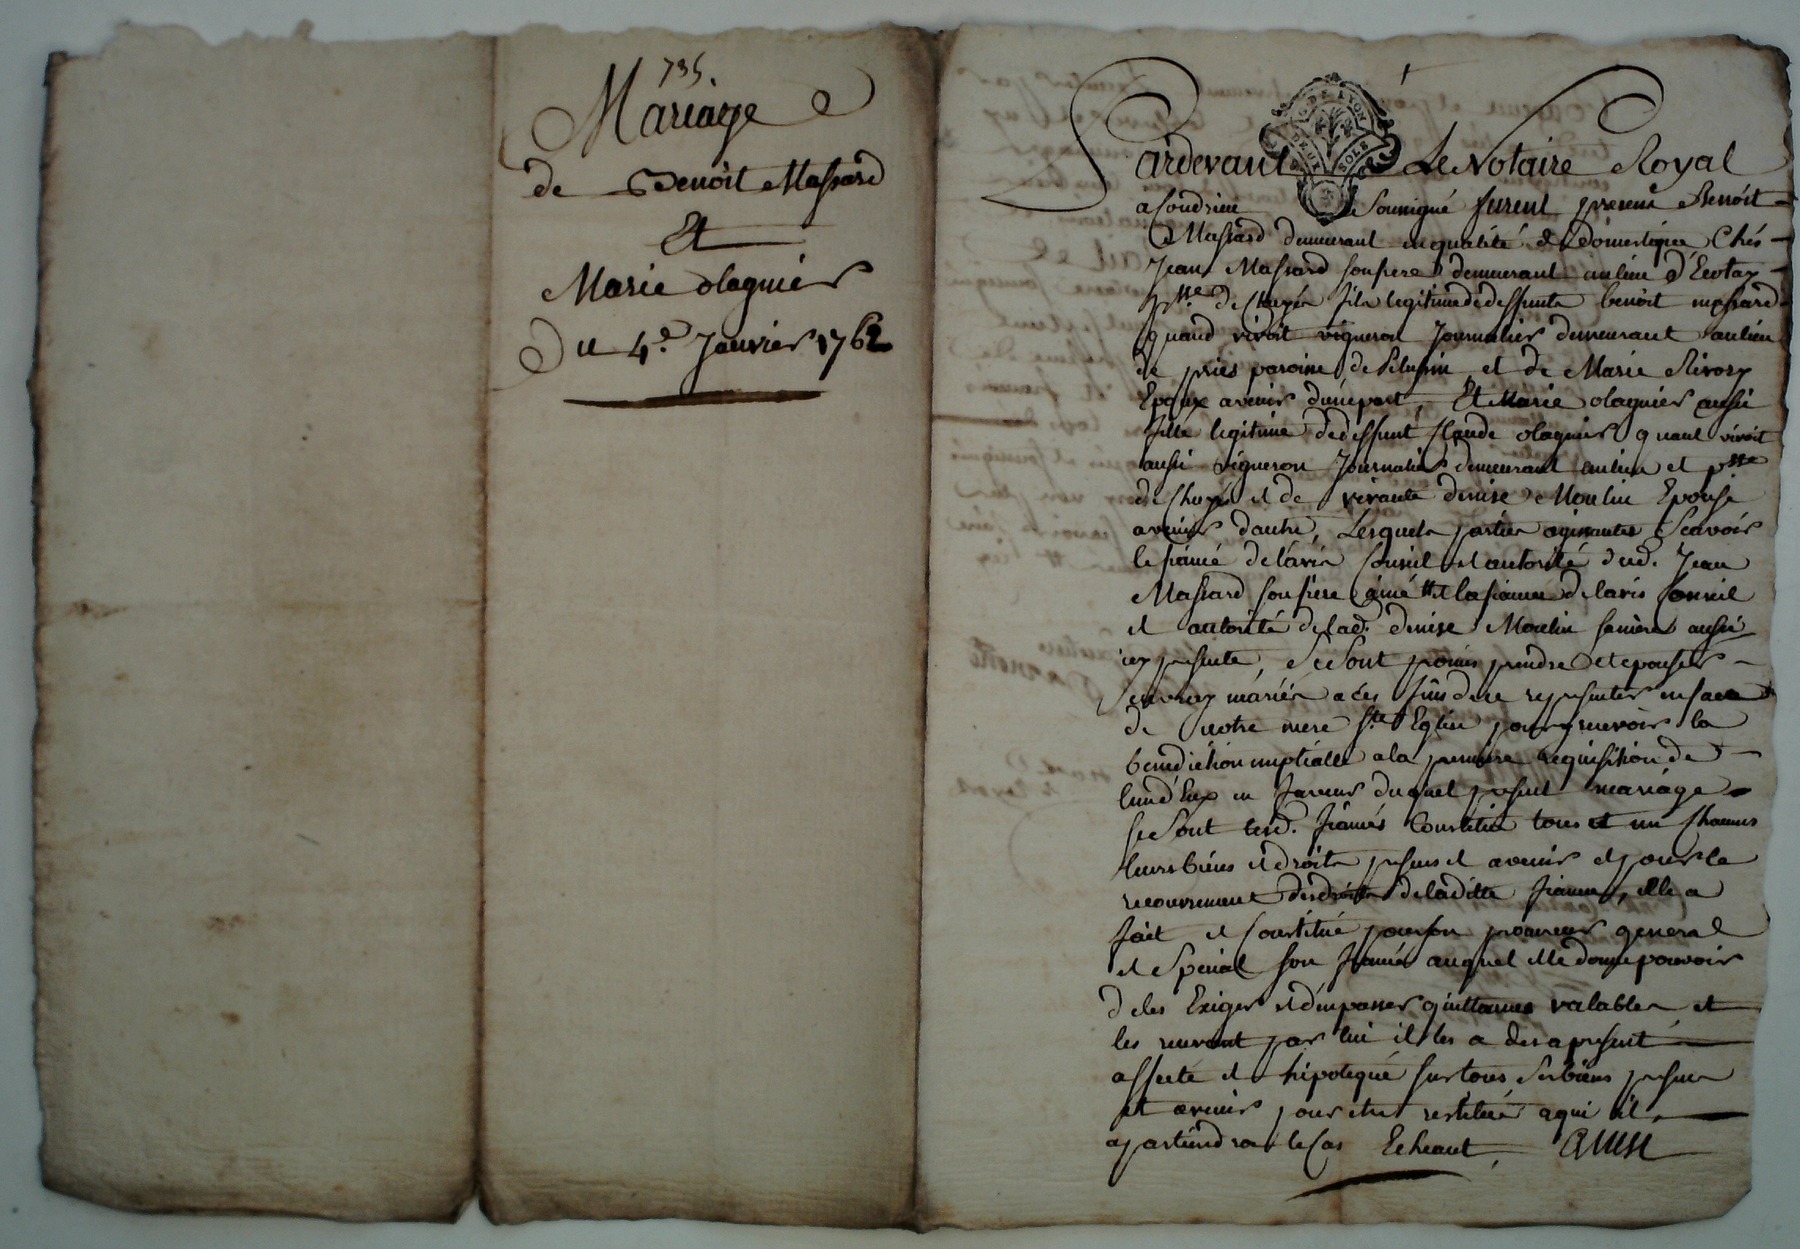 735.
Mariage
de Benoit Massard
Et
Marie olagnier
Du 4e. Janvier 1762
Pardevant Le Notaire Royal
a Condrieu Soussigné furent presens Benoit
Massard demeurant en qualité de domestique Chés
Jean Massard son frere demeurant au lieu d'Ecotay
psse de Chuyer fils legitime de deffunts benoit massard
quand vivoit vigneron Journalier demeurant au lieu
de paroisse de Pelussin et de Marie Rivory
Epoux avenir d'une part, Et Marie olagnier aussi
fille legitime de deffunt Claude olagnier quant vivoit
aussi vigneron Journalier demeurant au lieu et psse
de Chuyer et de vivante denise Moulin Epouse
avenir d'autre, Lesquels parties agissantes Scavoir
le fiancé de l'avis Conseil et autorité dud. Jean
Massard son frere ainé et la fiancée de l'avis Conseil
et autorité de lad. denise Moulin sa mere aussi
icy presente, Se Sont promis prendre et epouser
en vray mariés a ces fins de se representer en face
de notre mere Ste Eglise pour y recevoir la
benediction nuptialle a la premiere requisition de
l'un d'Eux en faveur duquel present mariage
se Sont lesd. fiancés Constitué tous et un Chacuns
leurs biens et droits presens et avenir et pour le
recouvrement des droits de laditte fiancée, elle a
fait et Constitué pour son procureur general
et Special son fiancé auquel elle donne pouvoir
de les Exiger et d'en passer quittances valables et
les recevant par lui il les a des a present
affecté et hipotequé sur tous Ses biens presens
et avenir pour etre restitués a qui il
apartiendra le Cas Echeant,